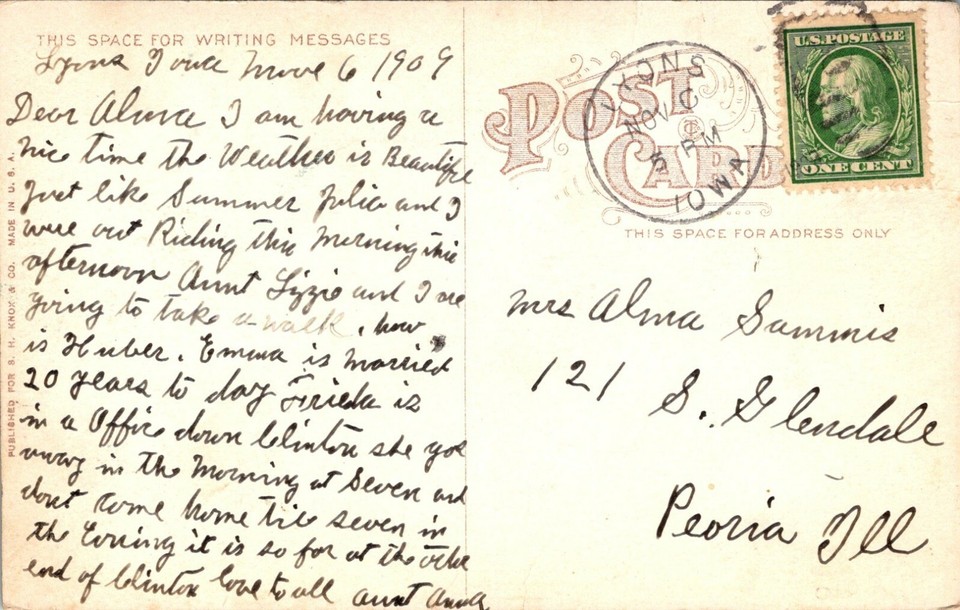 THIS SPACE FOR WRITING MESSAGES
Lyons Iowa Nove 6 1909
Dear Alma I am having a
nice time the Weather is Beautifle
Just like Summer Julia and I
were out Riding this Morning this
afternoon Aunt Lizzie and I are
going to take a walk, how
is Huber. Emma is married
20 years to day Frieda is
in a Office down Clinton she goes
away in the Morning at Seven and
dont come home till seven in
the Evning it is so far at the other
end of Clinton love to all aunt Anna
PUBLISHED FOR S. H. KNOX & CO. MADE IN U. S. A.
POST CARD
LYONS
NOV 6
5 PM
IOWA
U.S. POSTAGE
ONE CENT
THIS SPACE FOR ADDRESS ONLY
Mrs Alma Sammis
121
S. Glendale
Peoria Ill